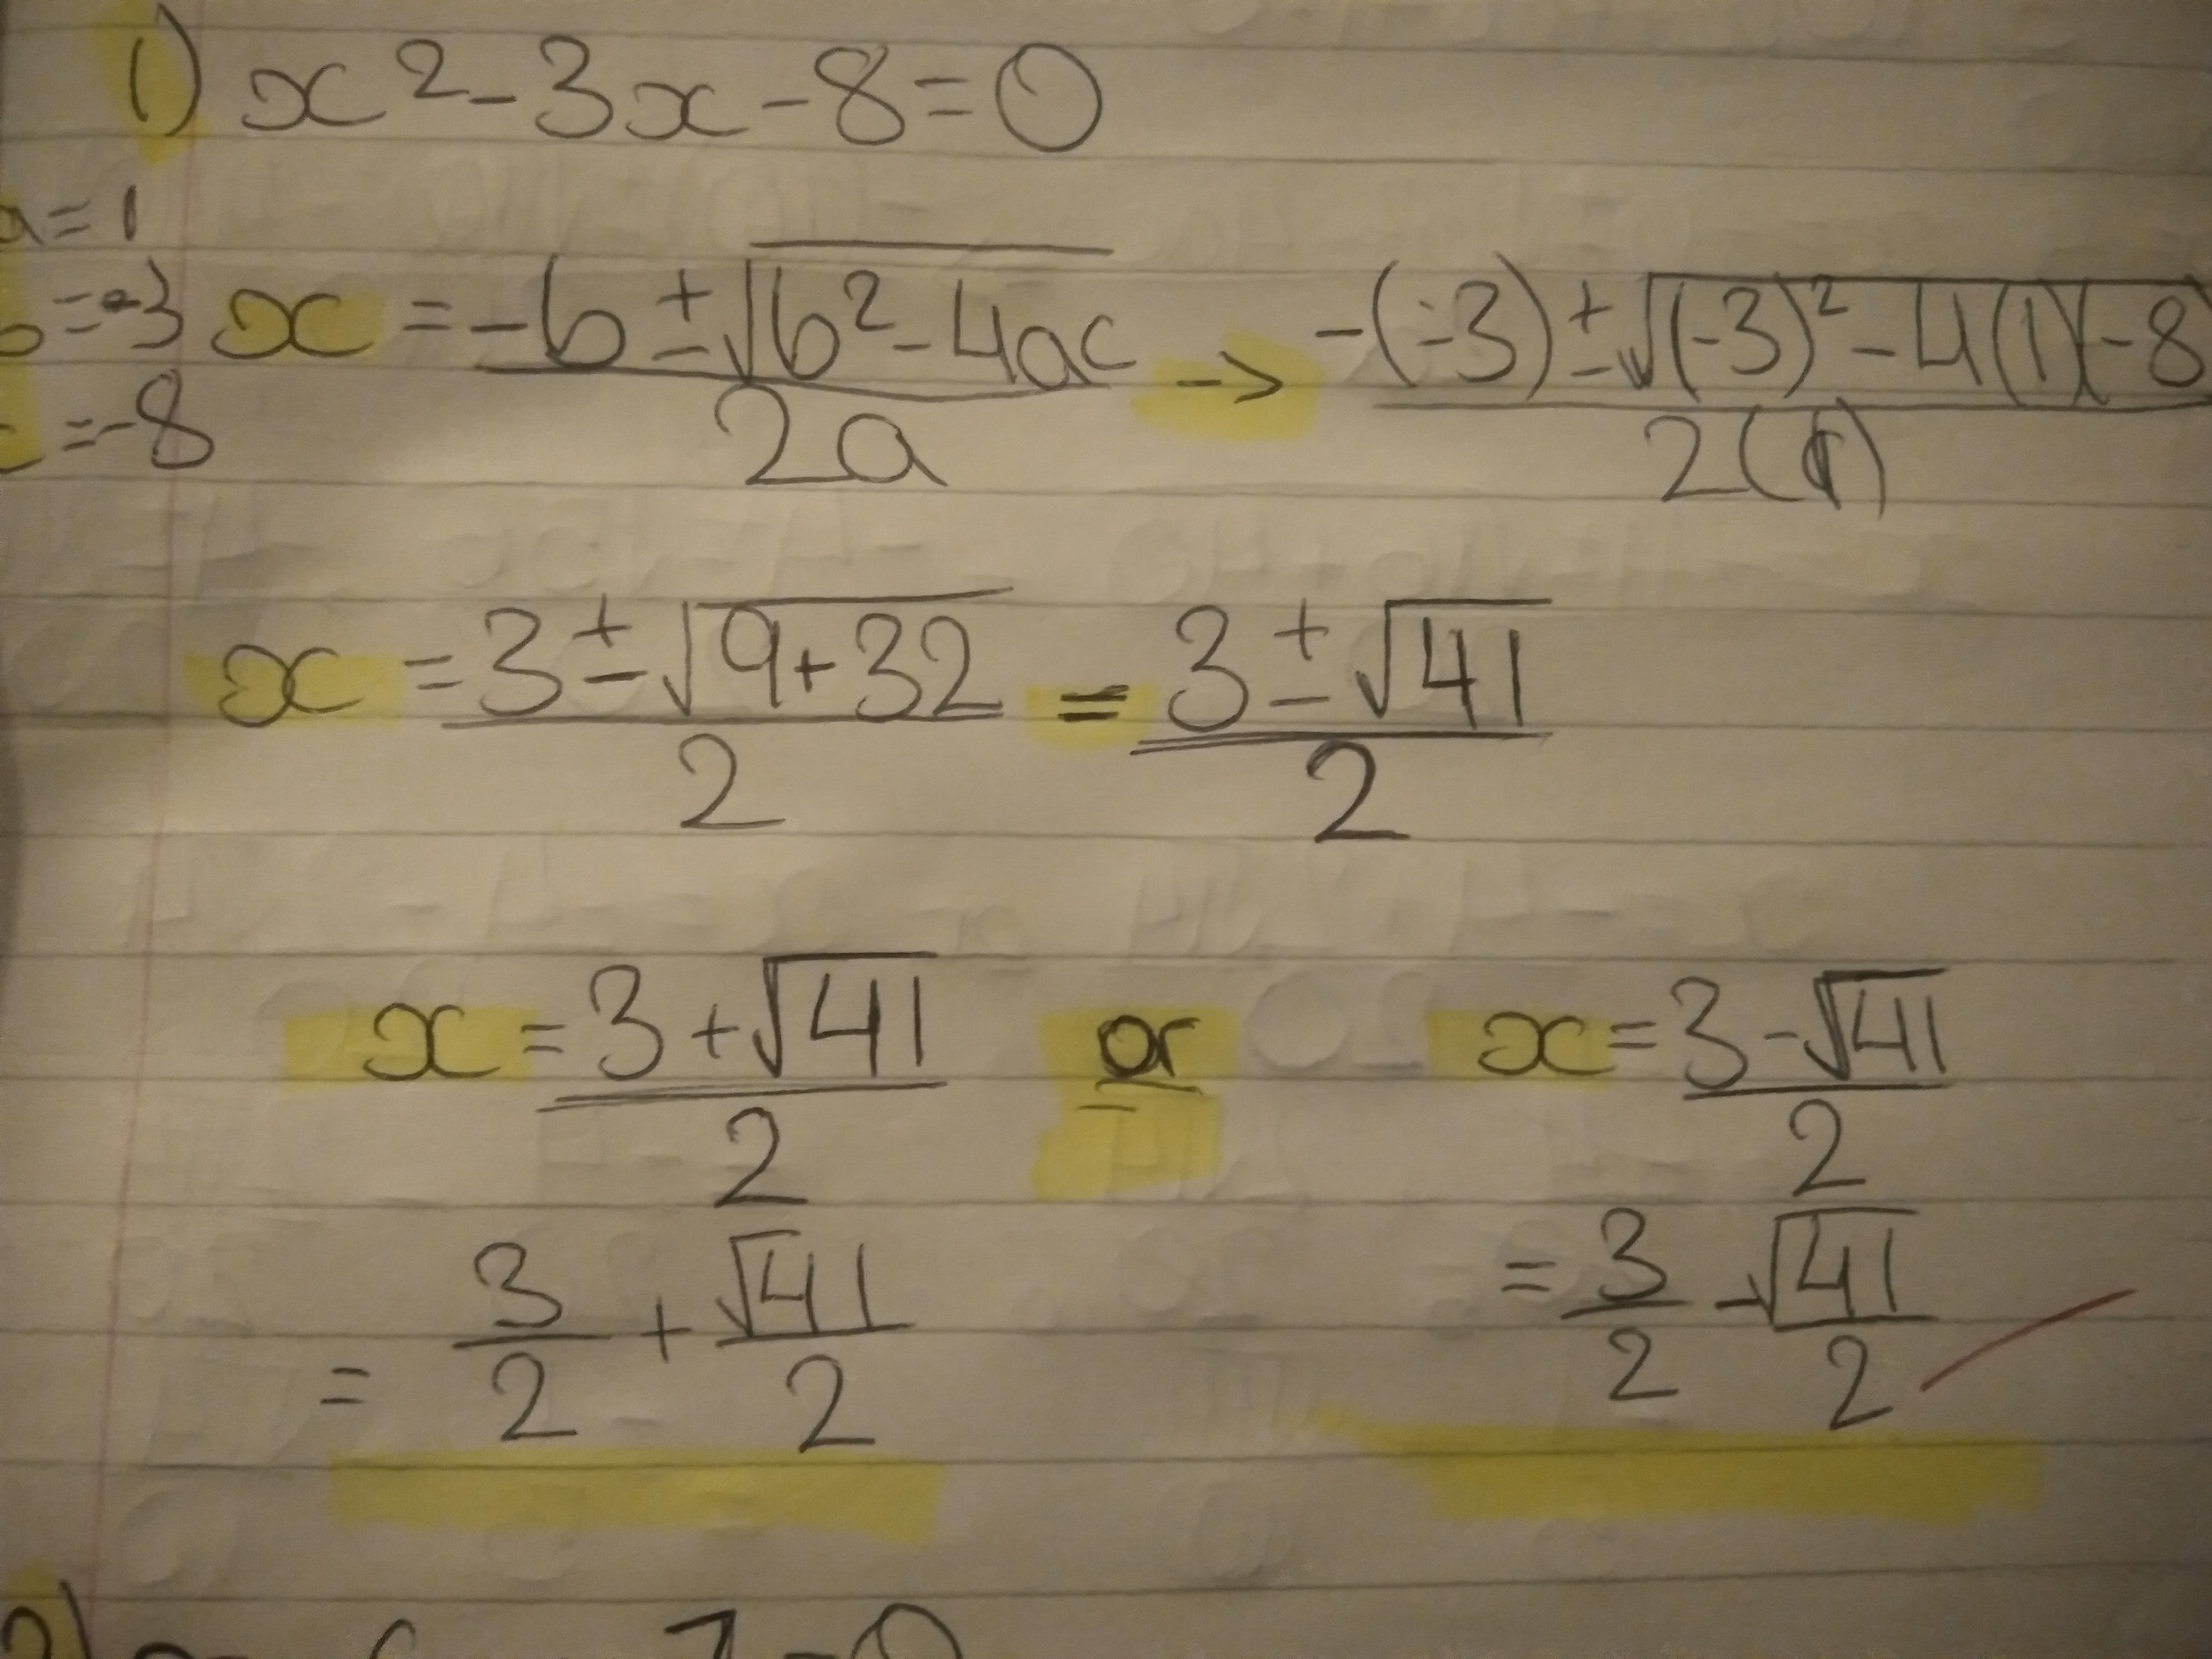 1) x² - 3x - 8 = 0
a = 1
b = -3 x = (-b ± √(b² - 4ac)) / 2a → (-(-3) ± √((-3)² - 4(1)(-8)) / 2(1)
c = -8
x = (3 ± √(9 + 32)) / 2 = (3 ± √41) / 2
x = (3 + √41) / 2 or x = (3 - √41) / 2
= 3/2 + √41/2 = 3/2 - √41/2